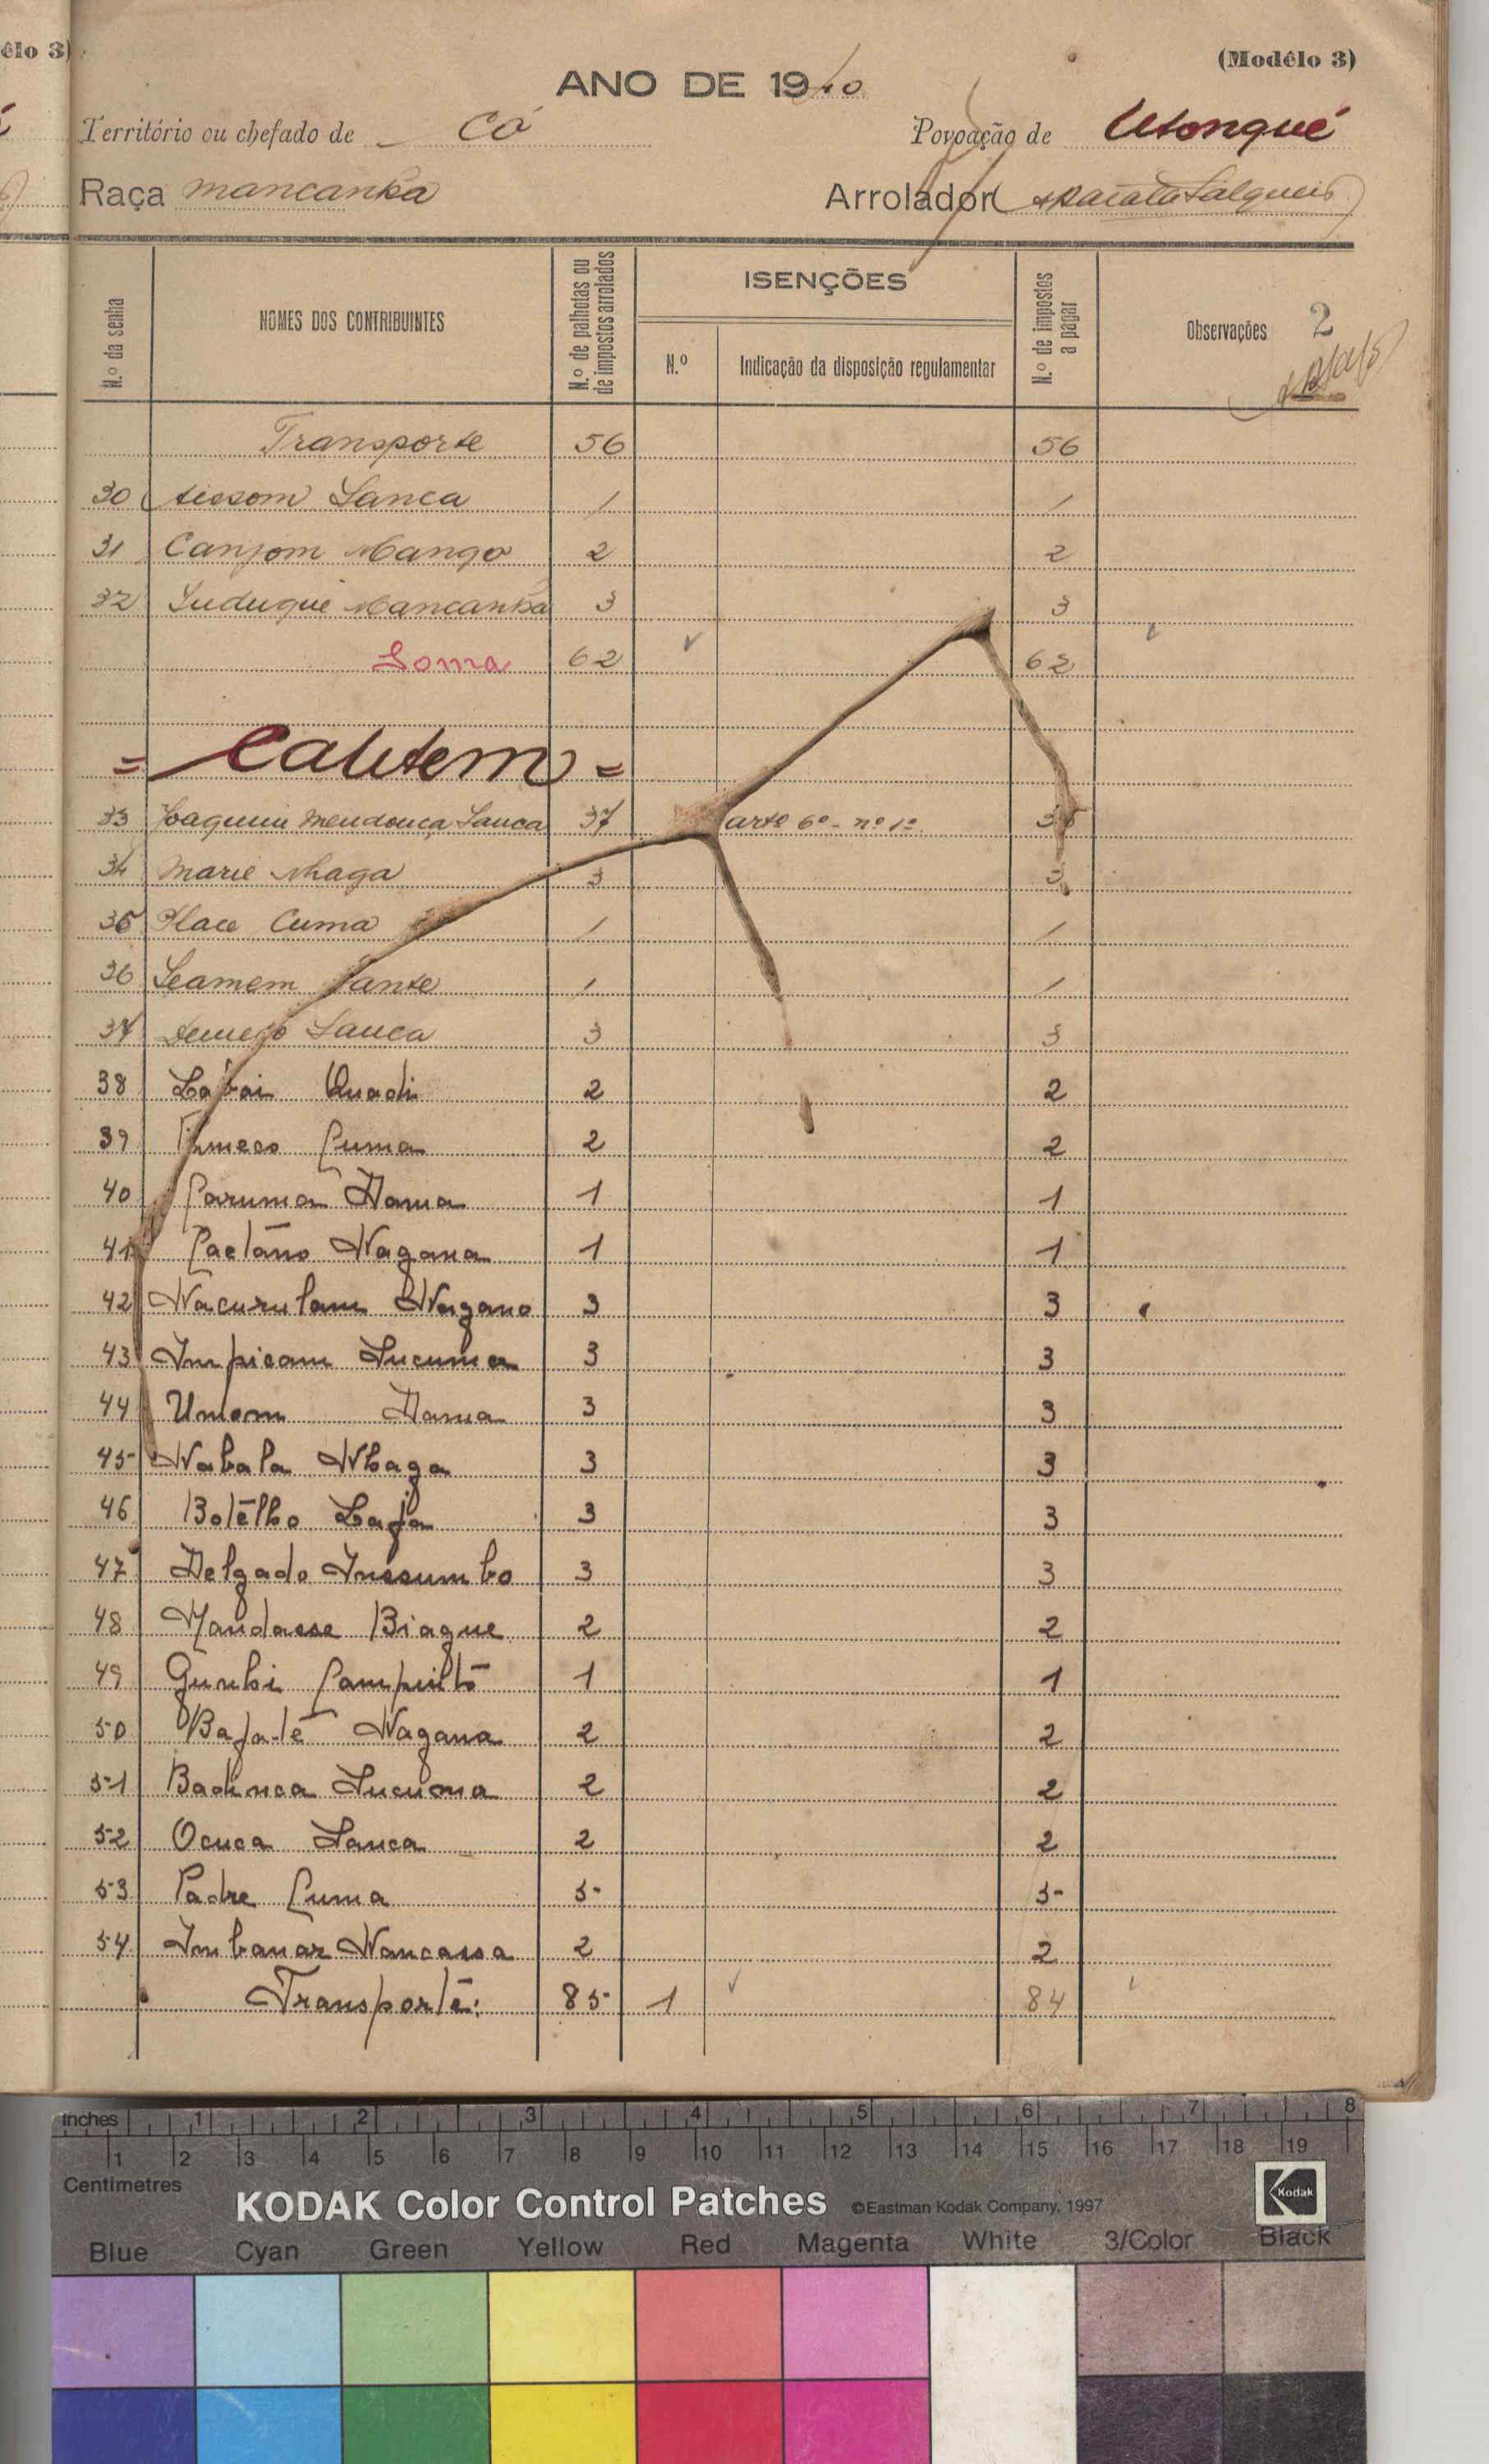 êlo 3)
(Modêlo 3)
ANO DE 1940
Território ou chefado de Có
Povoação de Utonqué
Raça mancanha
Arrolador
Nº da senha
NOMES DOS CONTRIBUINTES
N.º de palhotas ou de impostos arrolados
ISENÇÕES
N.º
Indicação da disposição regulamentar
N.º de impostos a pagar
Observações
2
Transporte 56 56
30 Sanca 1 1
31 Canjom Mango 2 2
32 Mancanha 3 3
Soma 62 62
= Calitem =
33 Joaquim Mendonça Sanca 37 artº 6º - nº 1º
34 Marie Nhaga 3 3
35 Cuma 1 1
36 1 1
37 Sanca 3 3
38 Quadi 2 2
39 Cuma 2 2
40 Caruma Dama 1 1
41 Caetāno Nagana 1 1
42 3 3
43 Impicam Sucuma 3 3
44 Unsom Dama 3 3
45 Nabala Nhaga 3 3
46 Botēlho 3 3
47 Delgado Inssumbo 3 3
48 Mandasse Biague 2 2
49 1 1
50 Bafa-lē Nagana 2 2
51 Badinca Sucuma 2 2
52 Ocuca Sanca 2 2
53 Padre Cuma 5 5
54 Imbanar Nancassa 2 2
Transportē: 85 1 84
inches 1 2 3 4 5 6 7 8
1 2 3 4 5 6 7 8 9 10 11 12 13 14 15 16 17 18 19
Centimetres
KODAK Color Control Patches ©Eastman Kodak Company, 1997
Kodak
Blue Cyan Green Yellow Red Magenta White 3/Color Black